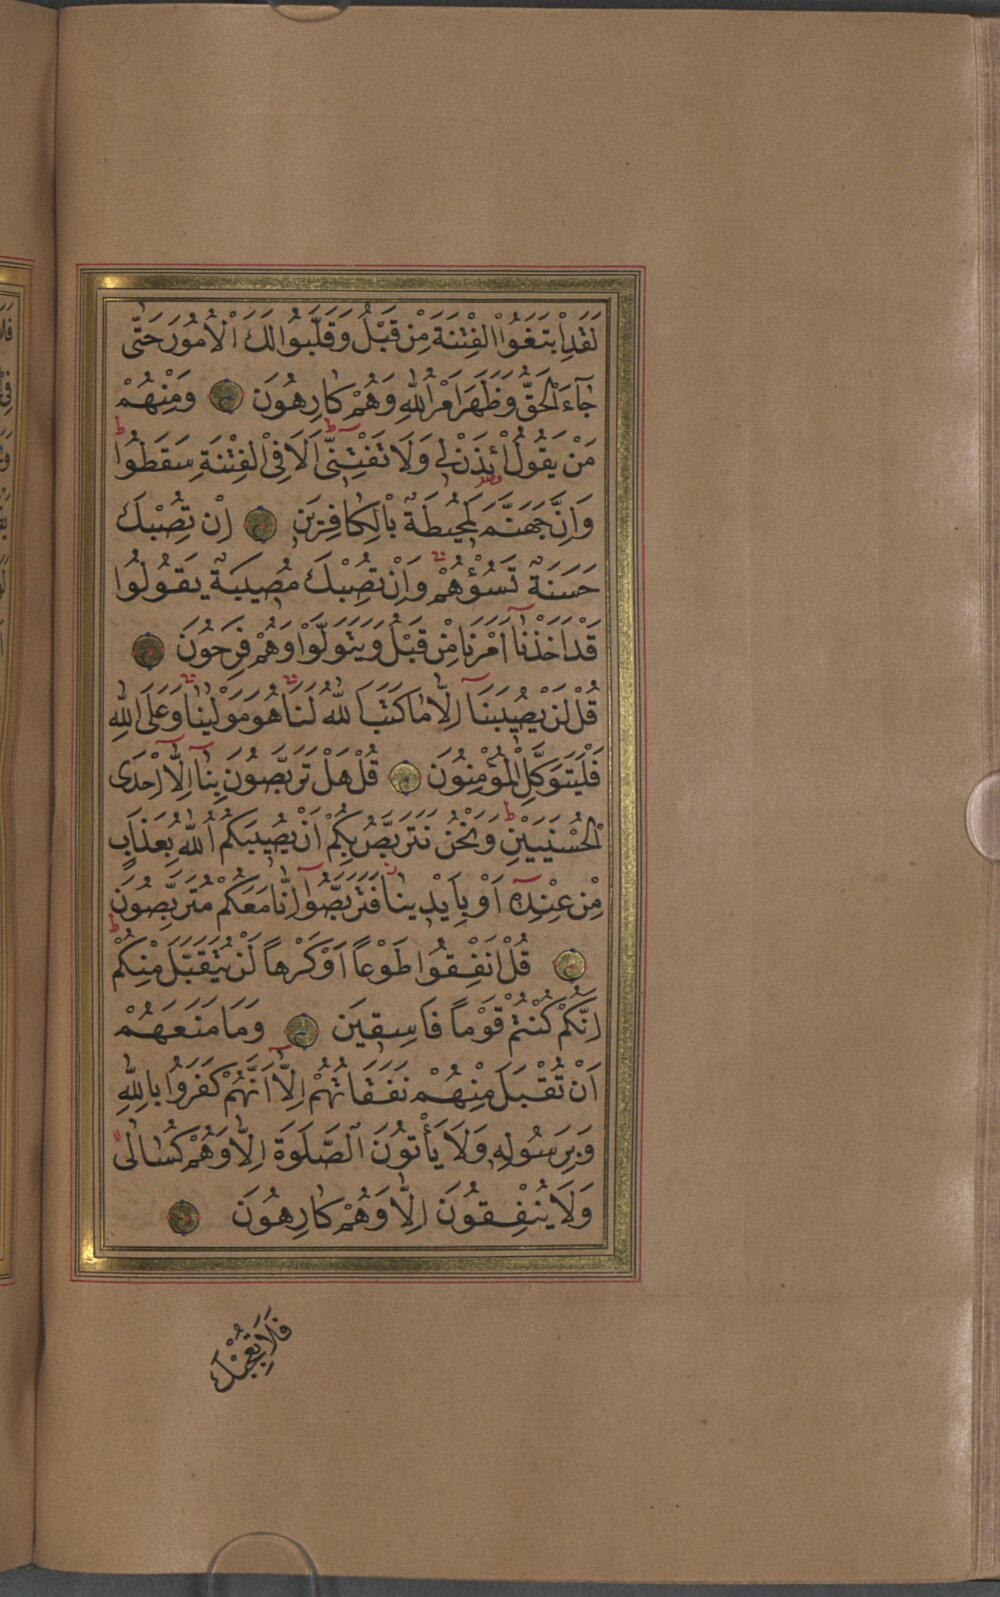 لَقَدِ ابْتَغَوُا الْفِتْنَةَ مِنْ قَبْلُ وَقَلَّبُوا لَكَ الْاُمُورَ حَتّٰى
جَٓاءَ الْحَقُّ وَظَهَرَ اَمْرُ اللّٰهِ وَهُمْ كَارِهُونَ وَمِنْهُمْ
مَنْ يَقُولُ ائْذَنْ ل۪ي وَلَا تَفْتِنّ۪ٓي اَلَا فِي الْفِتْنَةِ سَقَطُوا
وَاِنَّ جَهَنَّمَ لَمُح۪يطَةٌ بِالْكَافِر۪ينَ اِنْ تُصِبْكَ
حَسَنَةٌ تَسُؤْهُمْ وَاِنْ تُصِبْكَ مُص۪يبَةٌ يَقُولُوا
قَدْ اَخَذْنَٓا اَمْرَنَا مِنْ قَبْلُ وَيَتَوَلَّوْا وَهُمْ فَرِحُونَ
قُلْ لَنْ يُص۪يبَنَٓا اِلَّا مَا كَتَبَ اللّٰهُ لَنَا هُوَ مَوْلٰينَا وَعَلَى اللّٰهِ
فَلْيَتَوَكَّلِ الْمُؤْمِنُونَ قُلْ هَلْ تَرَبَّصُونَ بِنَٓا اِلَّٓا اِحْدَى
الْحُسْنَيَيْنِ وَنَحْنُ نَتَرَبَّصُ بِكُمْ اَنْ يُص۪يبَكُمُ اللّٰهُ بِعَذَابٍ
مِنْ عِنْدِه۪ٓ اَوْ بِاَيْد۪ينَا فَتَرَبَّصُٓوا اِنَّا مَعَكُمْ مُتَرَبِّصُونَ
قُلْ اَنْفِقُوا طَوْعاً اَوْ كَرْهاً لَنْ يُتَقَبَّلَ مِنْكُمْ
اِنَّكُمْ كُنْتُمْ قَوْماً فَاسِق۪ينَ وَمَا مَنَعَهُمْ
اَنْ تُقْبَلَ مِنْهُمْ نَفَقَاتُهُمْ اِلَّٓا اَنَّهُمْ كَفَرُوا بِاللّٰهِ
وَبِرَسُولِه۪ وَلَا يَأْتُونَ الصَّلٰوةَ اِلَّا وَهُمْ كُسَالٰى
وَلَا يُنْفِقُونَ اِلَّا وَهُمْ كَارِهُونَ
فَلَا تُعْجِبْكَ